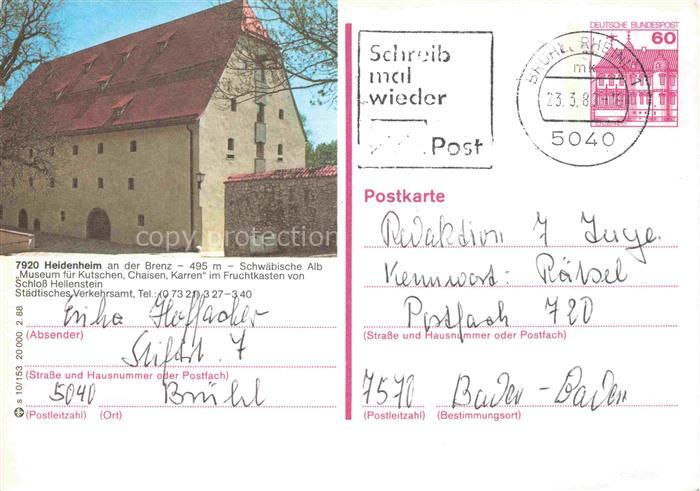 DEUTSCHE BUNDESPOST
60
Schreib
mal
wieder
Post
BRÜHL, RHEINL
mk
23.3.8
5040
Postkarte
7920 Heidenheim an der Brenz – 495 m – Schwäbische Alb
„Museum für Kutschen, Chaisen, Karren" im Fruchtkasten von
Schloß Hellenstein
Städtisches Verkehrsamt, Tel.: (0 73 21) 3 27-3 40
Erika Hoffacker
(Absender)
Stiftstr. 7
(Straße und Hausnummer oder Postfach)
5040 Brühl
(Postleitzahl) (Ort)
s 10/153 20 000 2.88
Redaktion 7
Kennwort: Rätsel
Postfach 720
(Straße und Hausnummer oder Postfach)
7570 Baden-Baden
(Postleitzahl) (Bestimmungsort)
copyright